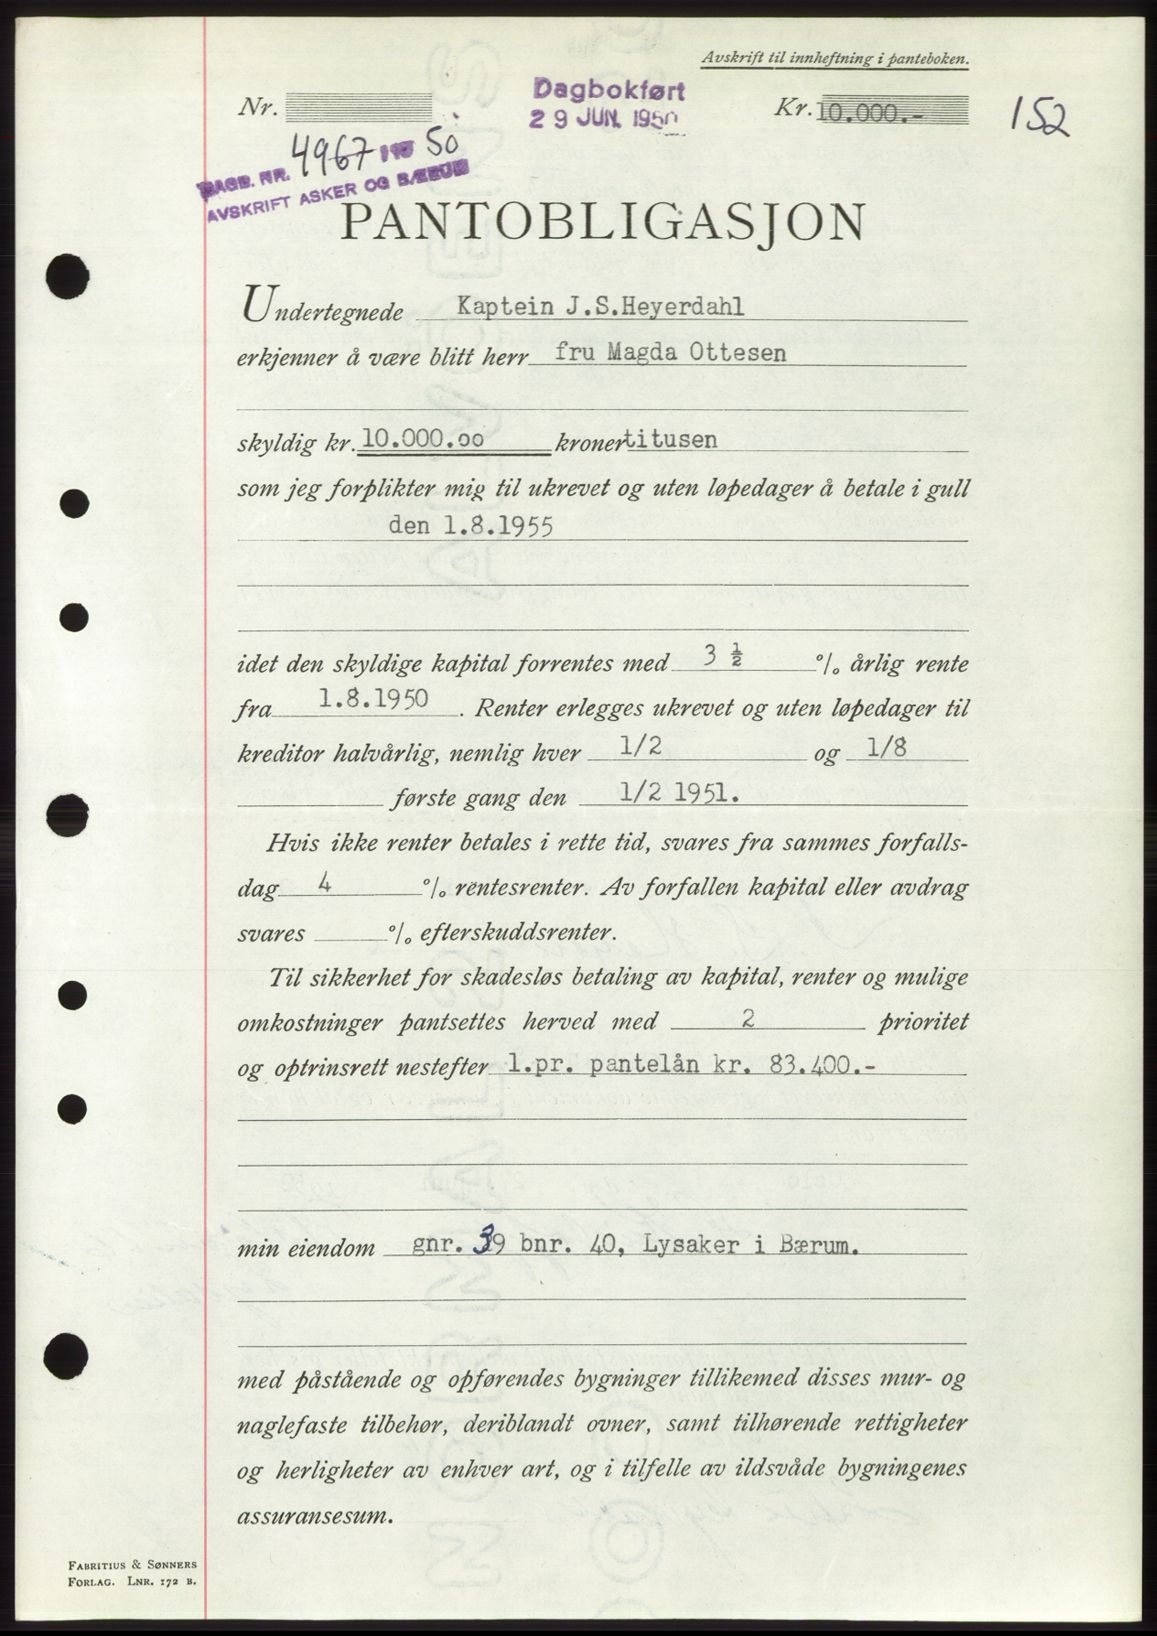 Avskrift til innheftning i panteboken.
Nr.
Dagbokført
29 JUN. 1950
Kr. 10.000.-
152
DAGB. NR. 4967 19 50
AVSKRIFT ASKER OG BÆRUM
PANTOBLIGASJON
Undertegnede Kaptein J.S.Heyerdahl
erkjenner å være blitt herr fru Magda Ottesen
skyldig kr. 10.000.oo kroner titusen
som jeg forplikter mig til ukrevet og uten løpedager å betale i gull
den 1.8.1955
idet den skyldige kapital forrentes med 3 ½ % årlig rente
fra 1.8.1950. Renter erlegges ukrevet og uten løpedager til
kreditor halvårlig, nemlig hver 1/2 og 1/8
første gang den 1/2 1951.
Hvis ikke renter betales i rette tid, svares fra sammes forfalls-
dag 4 % rentesrenter. Av forfallen kapital eller avdrag
svares % efterskuddsrenter.
Til sikkerhet for skadesløs betaling av kapital, renter og mulige
omkostninger pantsettes herved med 2 prioritet
og optrinsrett nestefter 1.pr. pantelån kr. 83.400.-
min eiendom gnr. 39 bnr. 40, Lysaker i Bærum.
med påstående og opførendes bygninger tillikemed disses mur- og
naglefaste tilbehør, deriblandt ovner, samt tilhørende rettigheter
og herligheter av enhver art, og i tilfelle av ildsvåde bygningenes
assuransesum.
FABRITIUS & SØNNERS
FORLAG. LNR. 172 B.